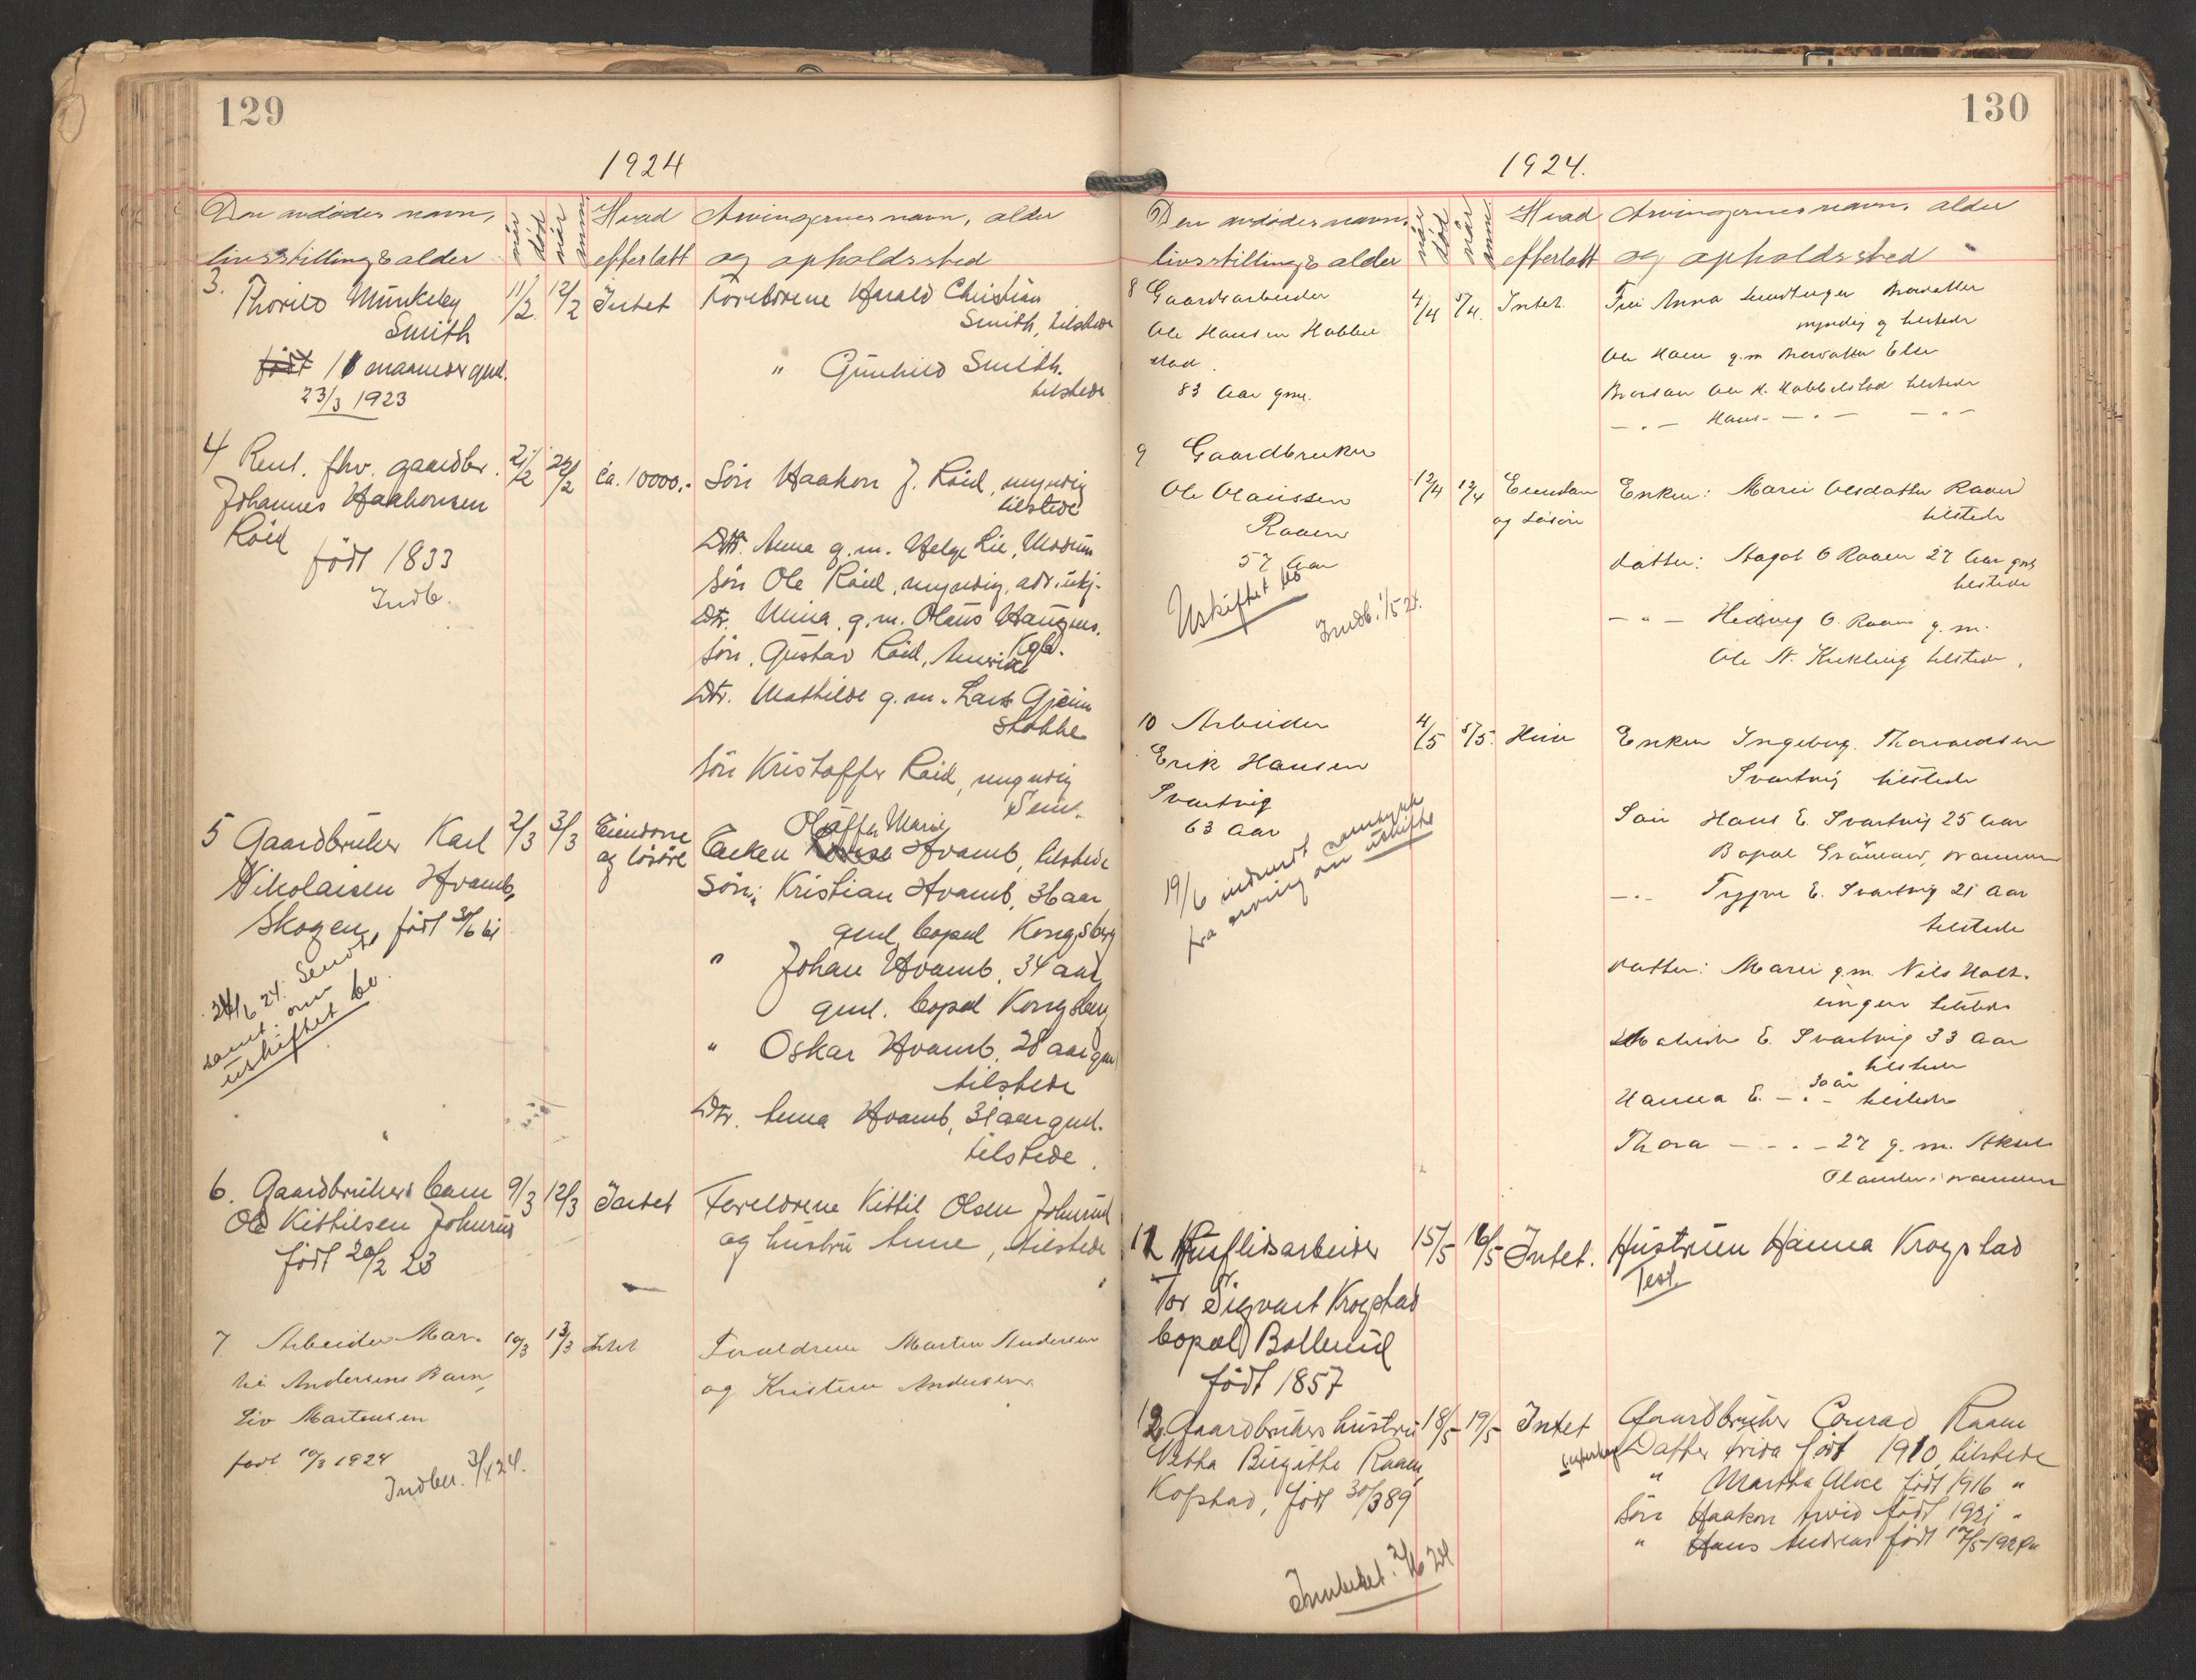 129
1924
Den avdødes navn,
livsstilling & alder
når død
når anm
Hvad
efterlatt
Arvingernes navn, alder
og opholdssted
3.
Thorild Munkeby 11/2 12/2 Intet Foreldrene Harald Christian
Smith Smith, tilstede
født 11 maaneder gml. " Gunhild Smith.
23/3 1923 tilstede
4 Rent. fhv. gaardbr. 21/2 22/2 ca. 10000,- Søn Haakon J. Røid, myndig
Johannes Haakonsen tilstede
Røid Dtr. Anna g.m. Helge Lie, Modum
født 1833 Søn Ole Røid, myndig,
Indb. Dtr. Mina, g.m. Olaus Haugens,
Kgbg.
Søn, Gustav Røid, Amerika
Dtr. Mathilde g.m. Lars
Stokke
Søn Kristoffer Røid, myndig
Sem.
5 Gaardbruker Karl 2/3 3/3 Eiendom Oluffa Marie
og løsøre Enken Hvamb, tilstede
Nikolaisen Hvamb, Søn: Kristian Hvamb, 36 aar
Skogen, født 30/6 61 gml, bopæl Kongsberg
24/6 24. Sendt " Johan Hvamb, 34 aar
samt. om gml. bopæl Kongsberg
uskiftet bo. " Oskar Hvamb, 28 aar gml
tilstede
Dtr. Anna Hvamb, 31 aar gml.
tilstede.
6. Gaardbrukers barn 9/3 12/3 Intet Foreldrene Kittil Olsen Johnrud
Ole Kittilsen Johnrud og hustru Anne, tilstede
født 20/2 23
7 Arbeider Mar- 10/3 13/3 Intet Foreldrene Martin Andersen
tin Andersens Barn, og Kristine Andersen
Liv Martensen
født 10/3 1924
Indber. 3/4 24.
130
1924.
Den avdødes navn,
livsstilling & alder
når død
når anm
Hvad
efterlatt
Arvingernes navn, alder
og opholdssted
8 Gaardsarbeider 4/4 5/4. Intet. Frk Anna Brordatter
Ole Hansen Habbel myndig og tilstede
stad. Ole Hoen g.m Brordatter Else
83 Aar gml. Brorsøn Ole H. Habbelstad tilstede
— " — Hans — " — — " —
9 Gaardbruker
Ole Olaussen 12/4 12/4 Eiendom Enken: Marie Olsdatter Raaen
Raaen og Løsøre tilstede
57 Aar datter: Aagot O Raaen 27 Aar gml
Uskiftet bo tilstede
Indb. 1/5 24. — " — Hedvig O. Raaen g.m.
Ole N. tilstede,
10 Arbeider 4/5 5/5. Enken Ingeborg Thorvaldsen
Erik Hansen Svartvig tilstede
Svartvig Søn Hans E. Svartvig 25 Aar
63 Aar Bopæl
19/6 indsendt samtykke — " — Trygve E. Svartvig 21 Aar
fra arving om uskifte tilstede
datter: Marie g.m. Nils Holt-
tilstede
E. Svartvig 33 Aar
tilstede
30 år
Hanna E. — " — tilstede
Thora — " — 27 g.m.
11 Husflidsarbeider 15/5 16/5 Intet. Hustruen Hanna Krogstad
Tor Sigvart Krogstad Test.
bopæl Bollerud
født 1857
12. Gaardbrukers hustru 18/5 19/5 Intet Gaardbruker Conrad Raaen
Birgitte Raaen, Datter Frida født 1910, tilstede
Kopstad, født 30/3 89 " Martha Alvee født 1916 "
Søn Haakon Arvid født 1921 "
" Hans Andreas født 17/5-1924 "
Innberet. 2/6 24